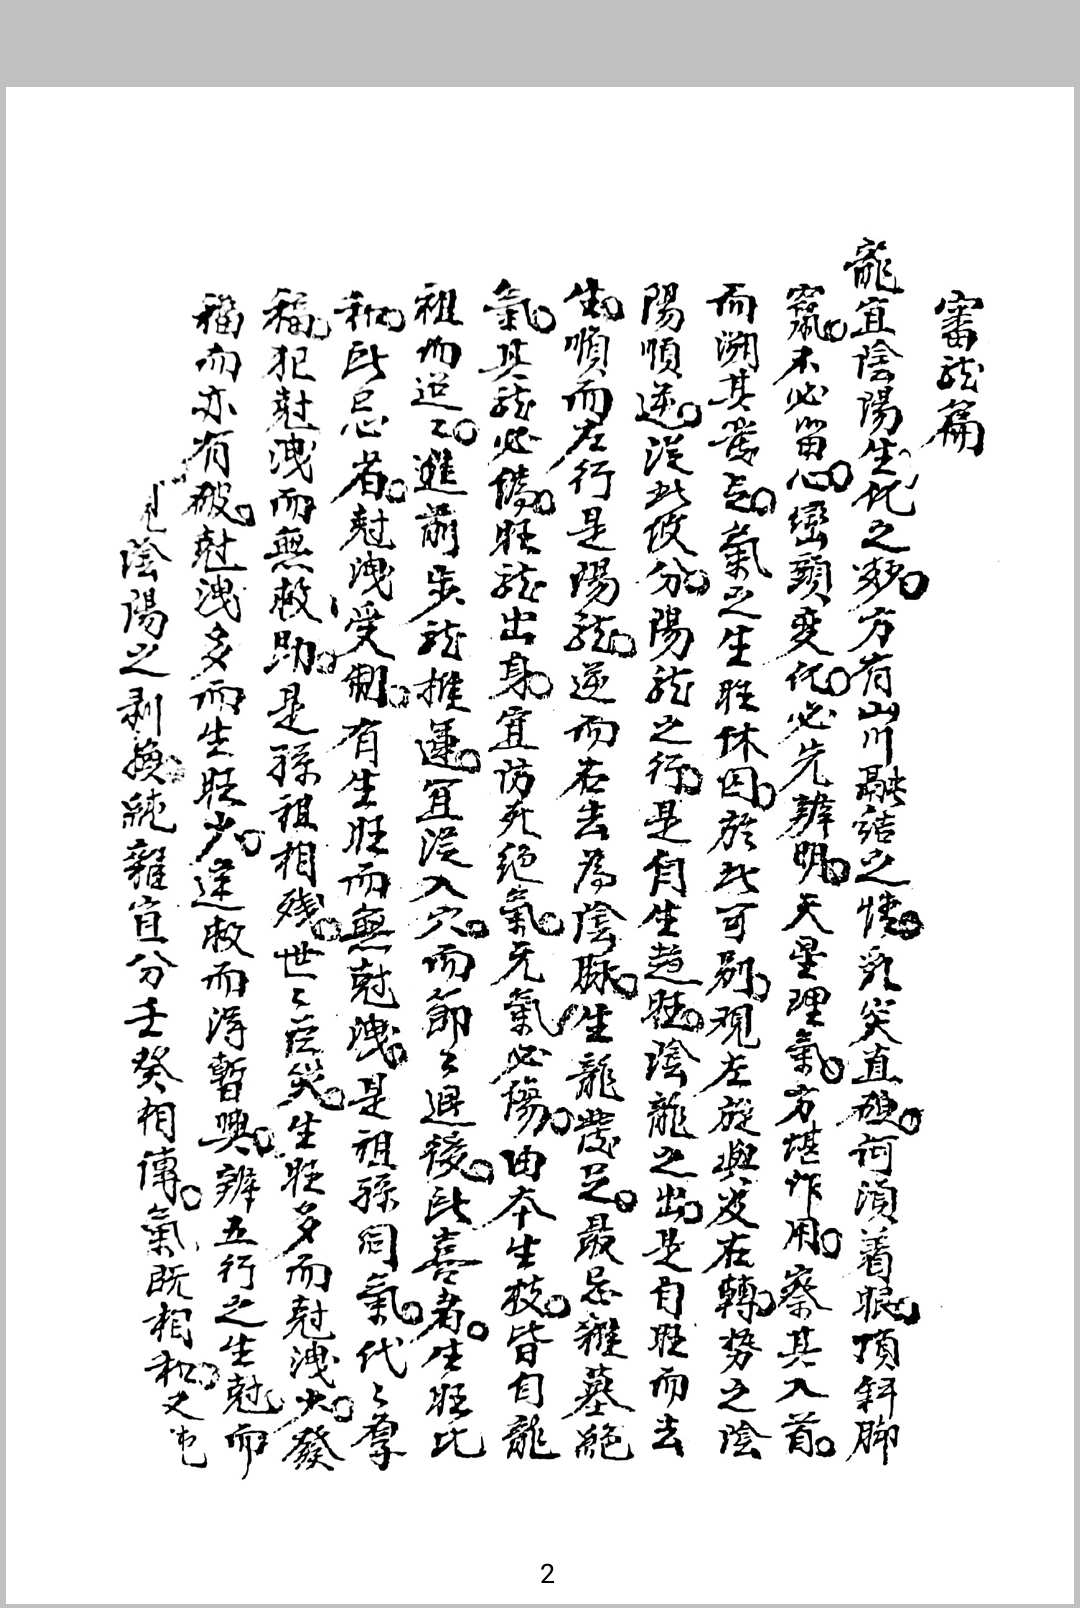 審龍篇
龍宜陰陽生化之妙。方有山川融結之情。乳突直硬。何須着眼。頂斜脚
竄。不必留心。巒頭变化。必先辨明。天星理氣。方堪作用。察其入首。
而溯其發足。氣之生旺休囚。於此可別。观左旋與及右轉。势之陰
陽順逆。從此攸分。陽龍之行。是自生趋旺。陰龍之出。是自旺而去
生。順而左行是陽龍。逆而右去為陰脉。生龍發足。最忌雜墓絕
氣。其龍必傷。旺龍出身。宜防死绝氣。兄氣必傷。由本生枝。皆自龍
祖而逆々。進前步龍推運。宜從入穴。而節々退後。此喜者。生旺比
和。此忌者。尅洩受制。有生旺而無尅洩。是祖孫同氣。代々享
福。犯尅洩而無救助。是孫祖相残。世々応災。生旺多而尅洩少。發
福而亦有破。尅洩多而生旺少。逢救而得暫興。辨五行之生尅。而
見陰陽之剥换。純雜宜分壬癸相傳。氣既相和。又屯
2